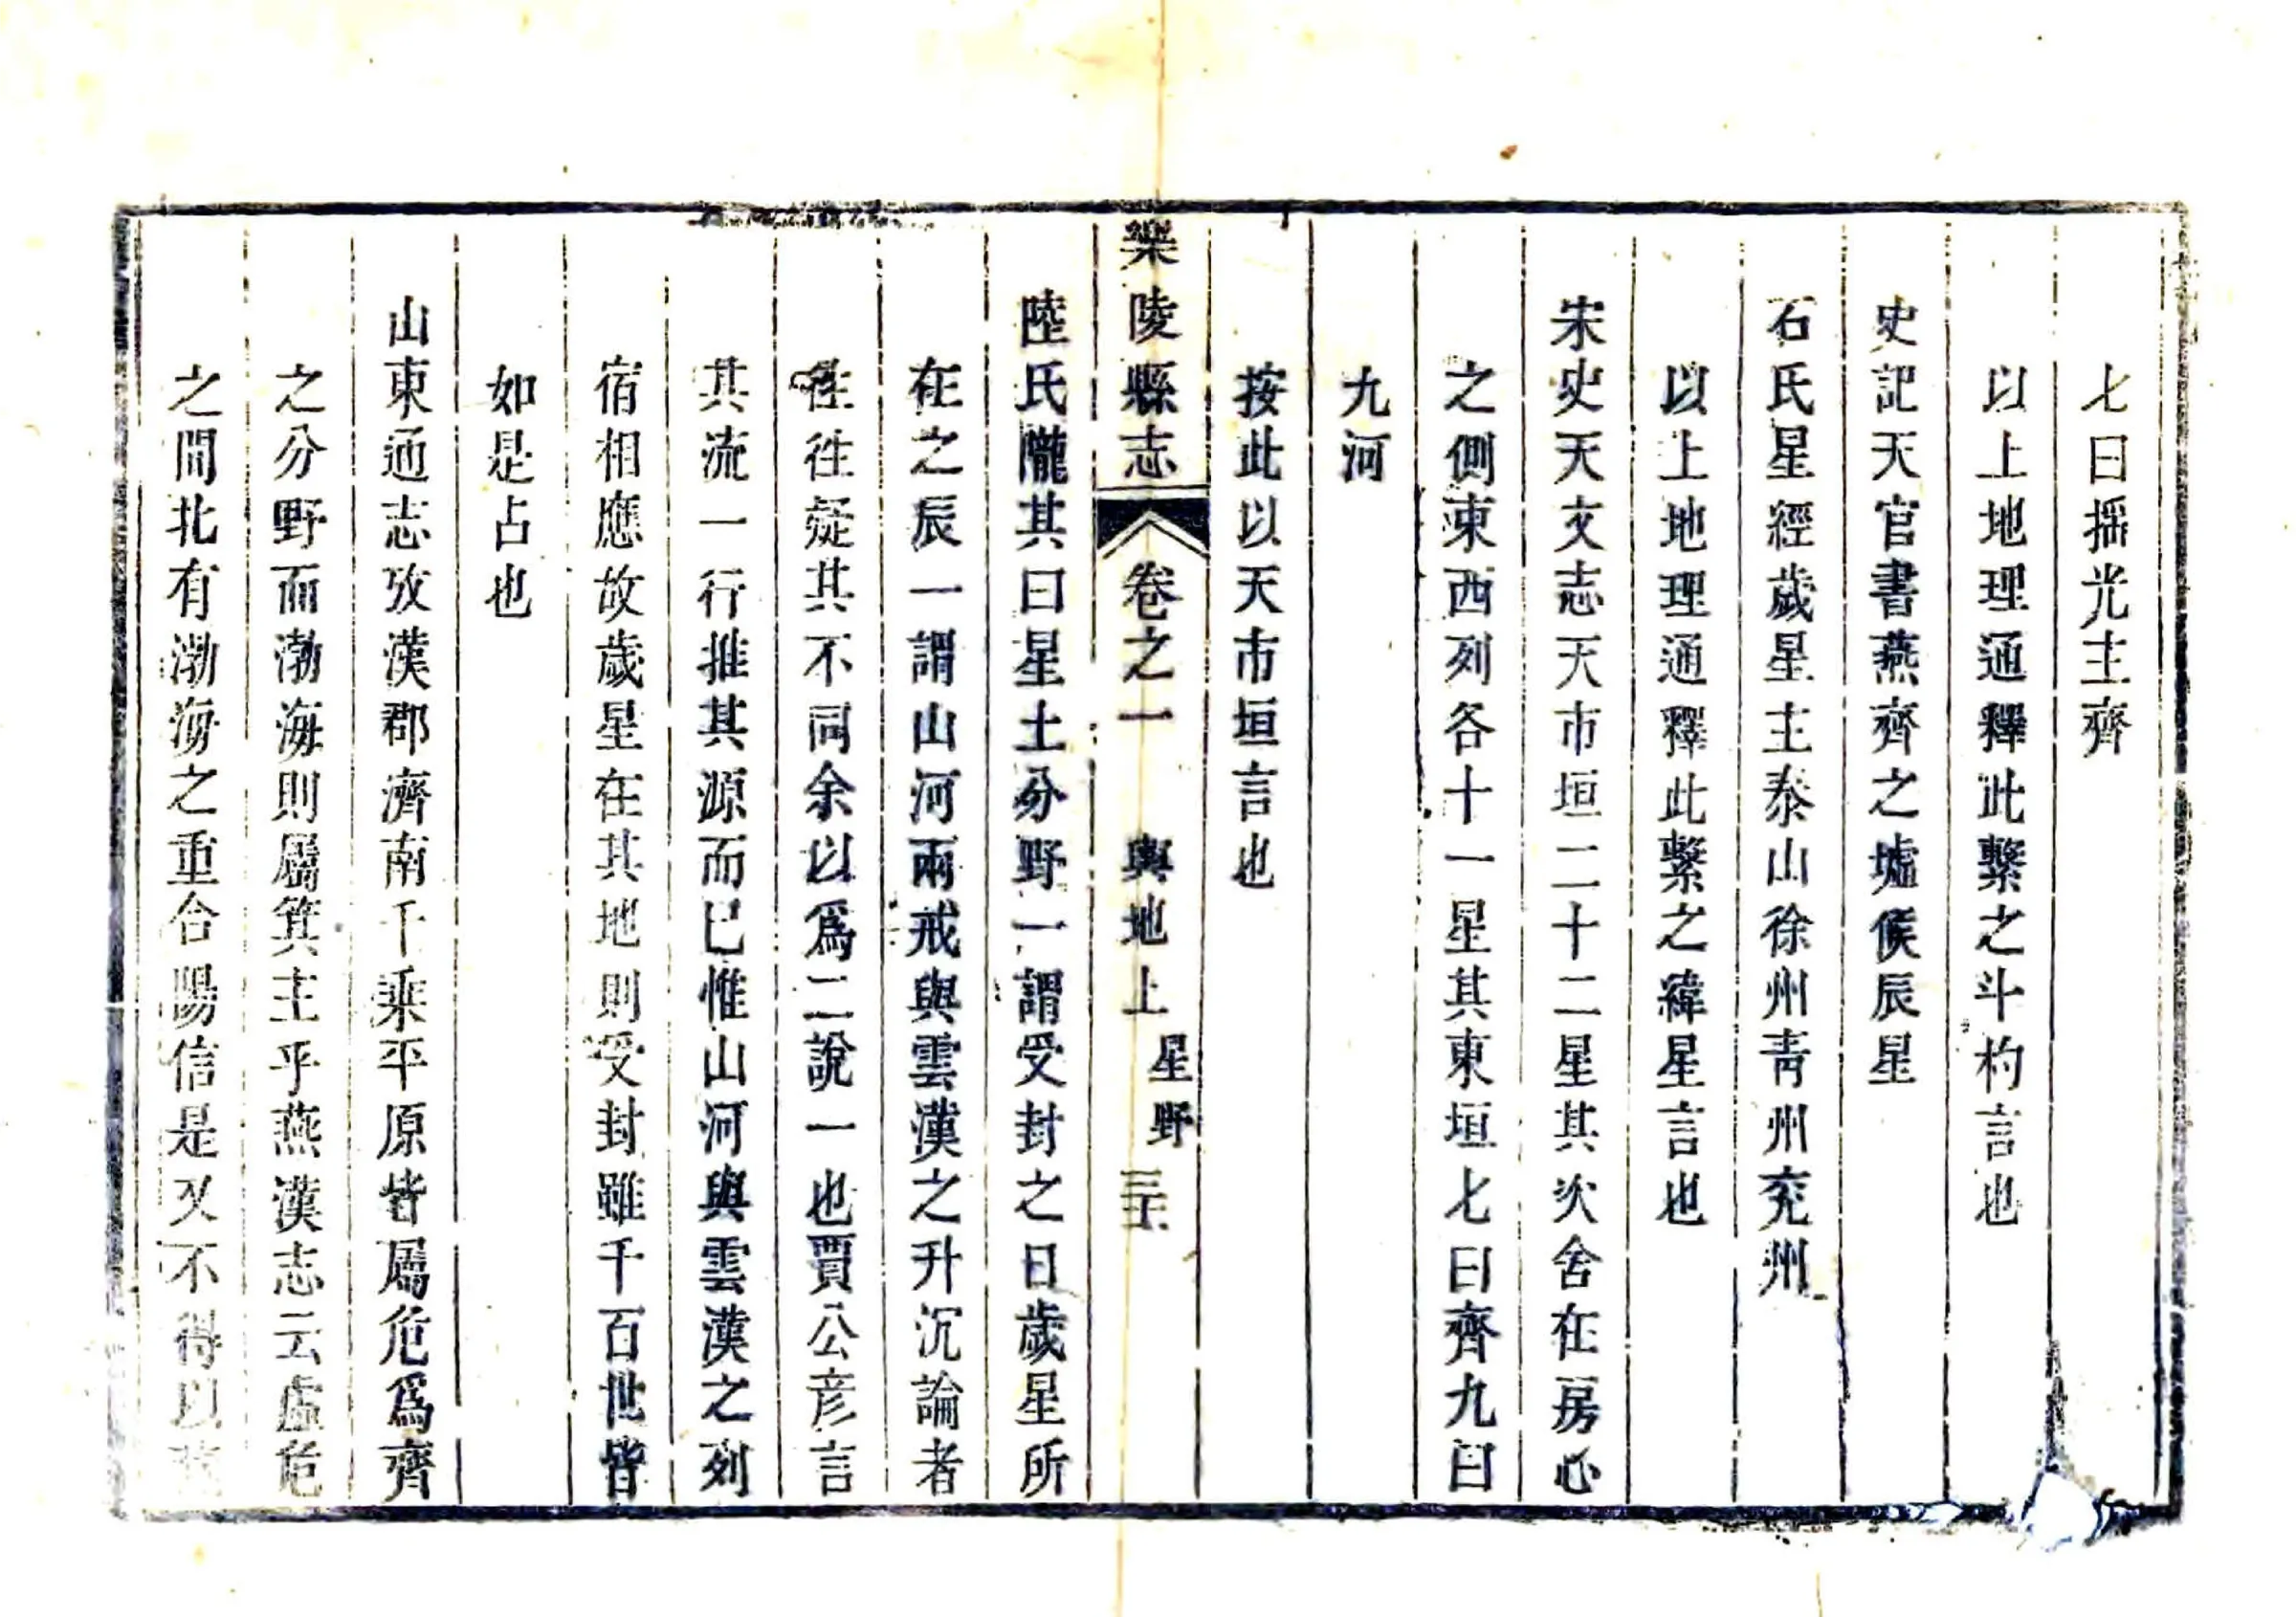 七曰揺光主齊
以上地理通釋此繫之斗杓言也
史記天官書燕齊之墟候辰星
石氏星經歲星主泰山徐州青州兖州
以上地理通釋此繫之緯星言也
宋史天文志天市垣二十二星其次舍在房心
之側東西列各十一星其東垣七曰齊九曰
九河
按此以天市垣言也
樂陵縣志
卷之一 輿地上 星野
陸氏隴其曰星土分野一謂受封之日歲星所
在之辰一謂山河兩戒與雲漢之升沉論者
往往疑其不同余以爲二說一也賈公彦言
其流一行推其源而已惟山河與雲漢之列
宿相應故歲星在其地則受封雖千百世皆
如是占也
山東通志攷漢郡濟南千乘平原皆屬危爲齊
之分野而渤海則屬箕主乎燕漢志云虛危
之間北有渤海之重合陽信是又不得以